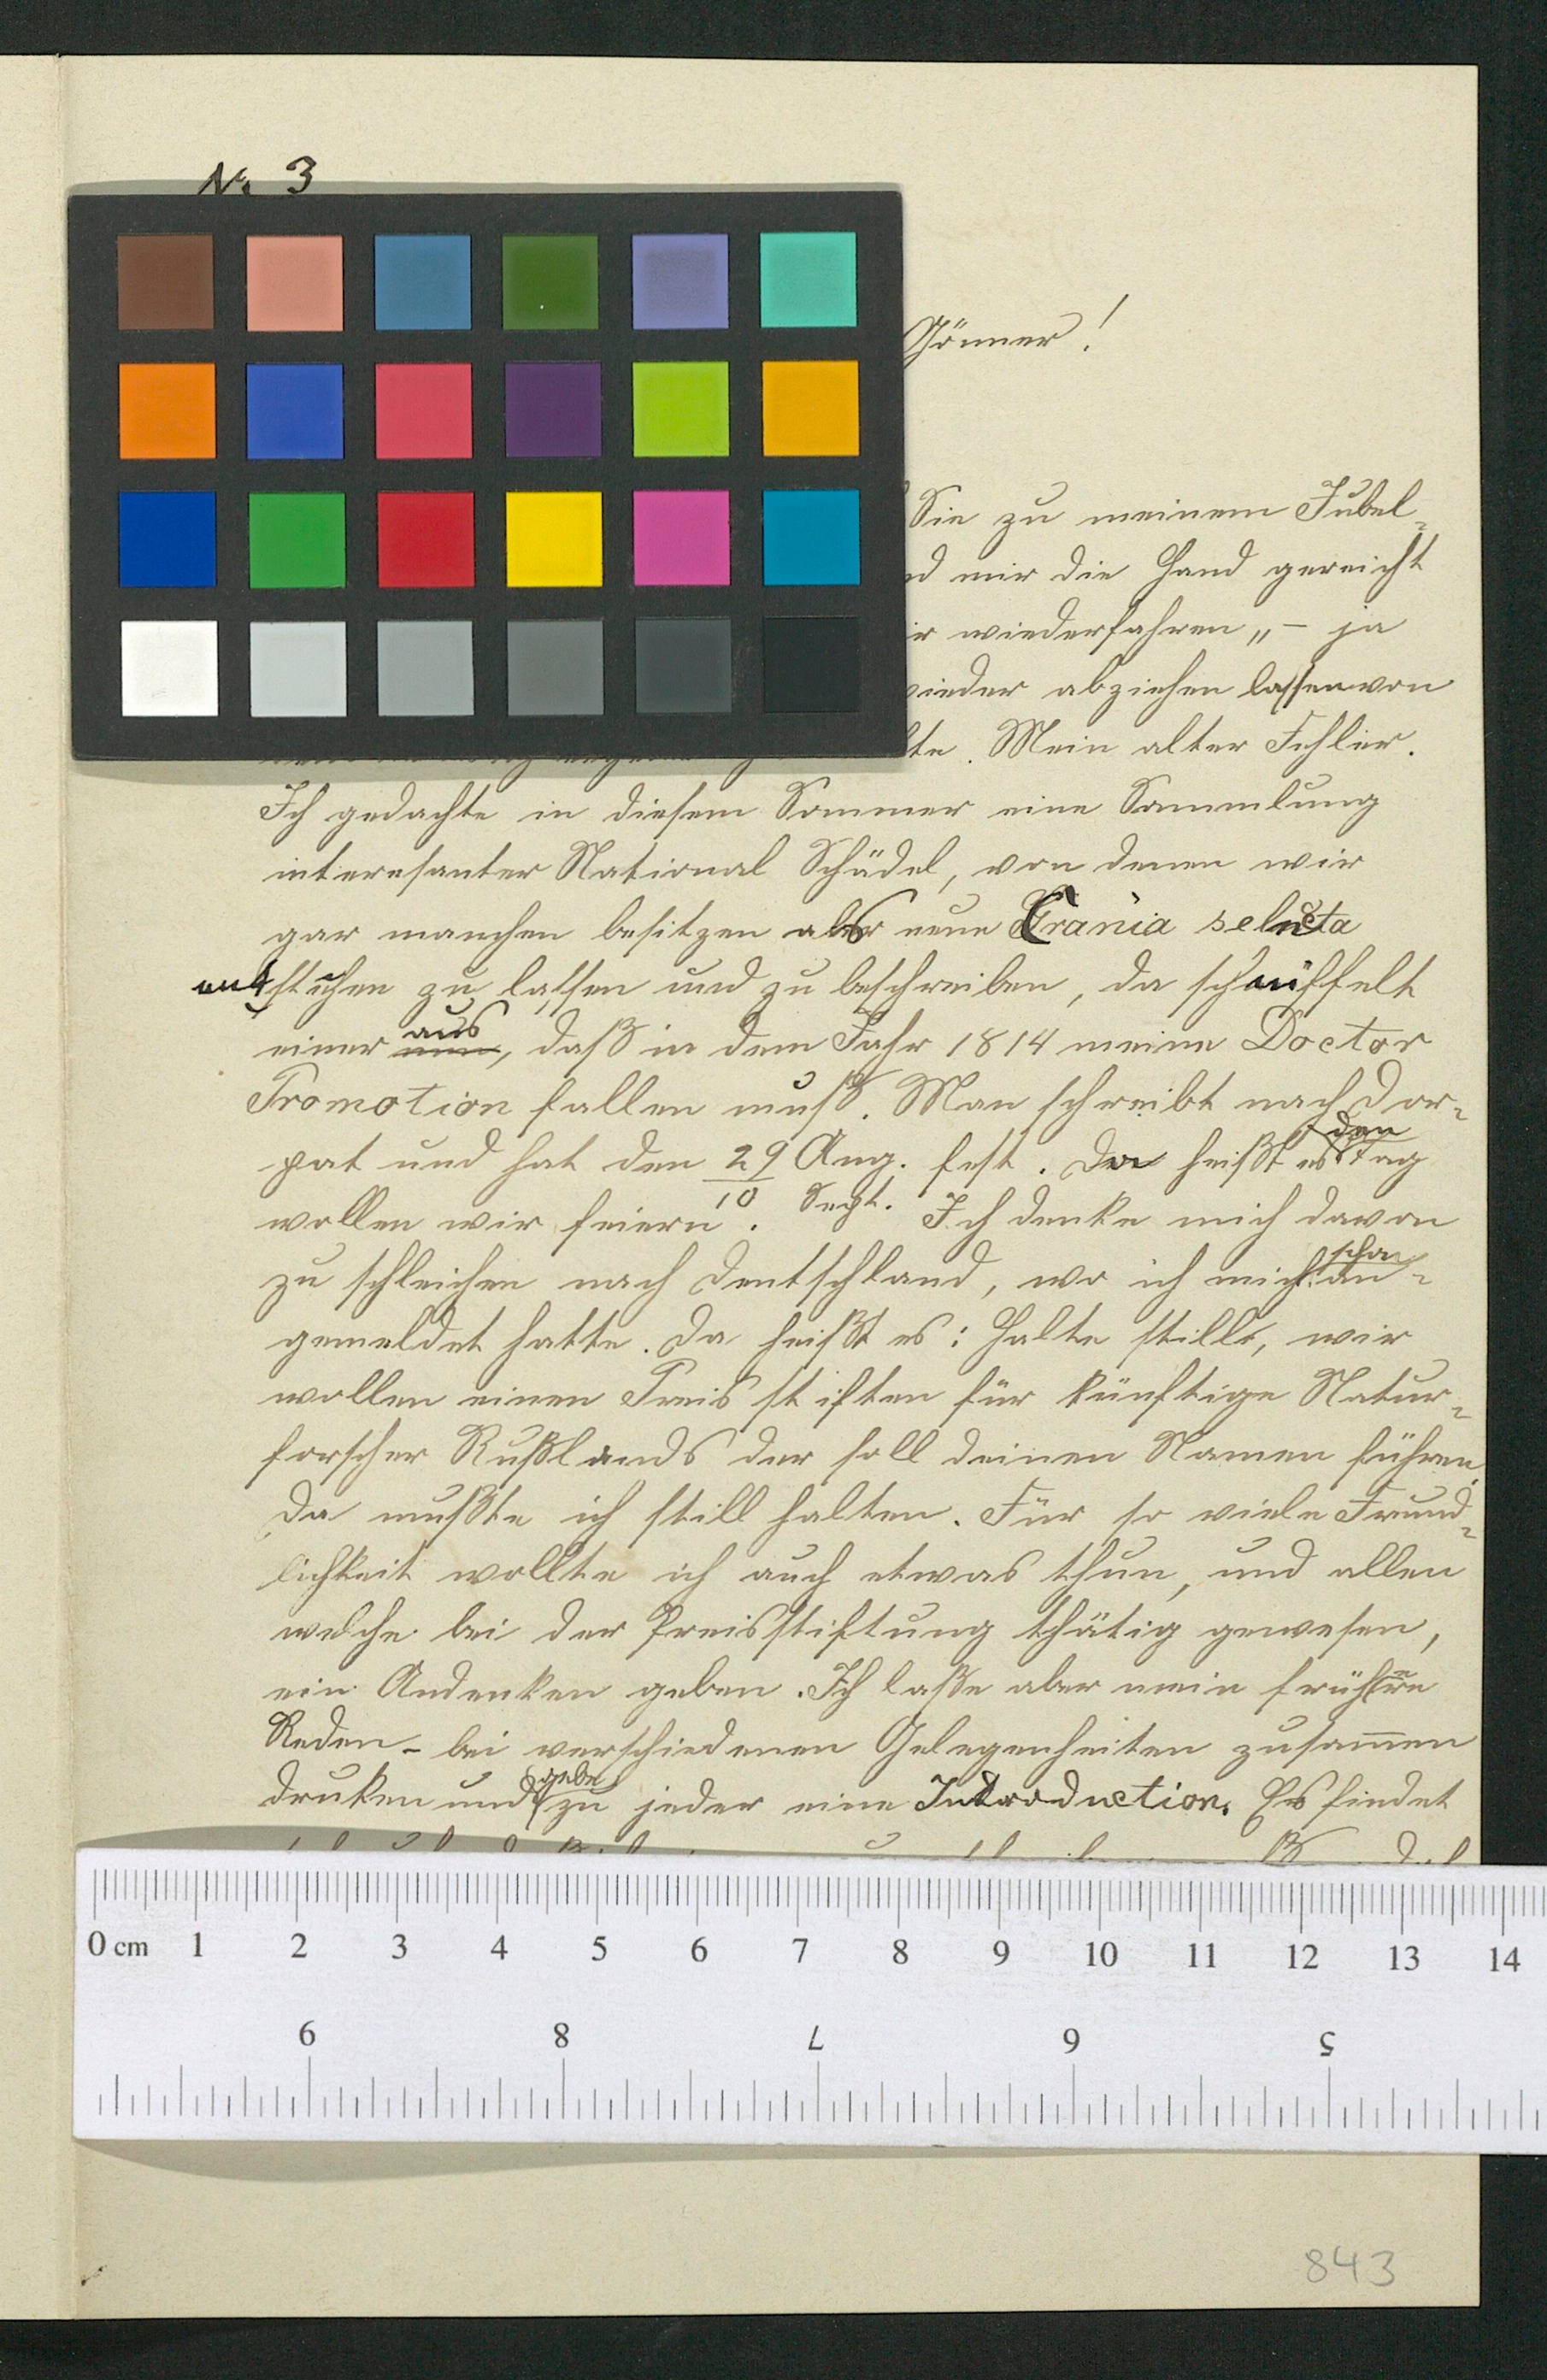 No. 3
Gönner!
Sie zu meinem Jubel-
mir die Hand gereicht
wiederfahren „– ja
wieder abziehen lassen von
Mein alter Fehler.
Ich gedachte in diesem Sommer eine Sammlung
interesanter National Schädel, von denen wir
gar manchen besitzen als neue Crania selecta
stechen zu lassen und zu beschreiben, da schnüffelt
einer aus, daß in dem Jahr 1814 meine Doctor
Promotion fallen muß. Man schreibt nach Dor-
pat und hat den 29 Aug. fest. Da heißt es den Tag
10 Sept.
wollen wir feiern. Ich denke mich davon
zu schleichen nach Deutschland, wo ich mich schon an-
gemeldet hatte. Da heißt es: Halte stille, wir
wollen einen Preis stiften für künftige Natur-
forscher Rußlands der soll deinen Namen führen.
Da mußte ich still halten. Für so viele Freund-
lichkeit wollte ich auch etwas thun, und allen
welche bei der Preisstiftung thätig gewesen,
ein Andenken geben. Ich laße aber mein frühere
Reden – bei verschiedenen Gelegenheiten zusam̄en
druken und gebe zu jeder eine Introduction. Es findet
0 cm 1 2 3 4 5 6 7 8 9 10 11 12 13 14
9 8 7 6 5
843